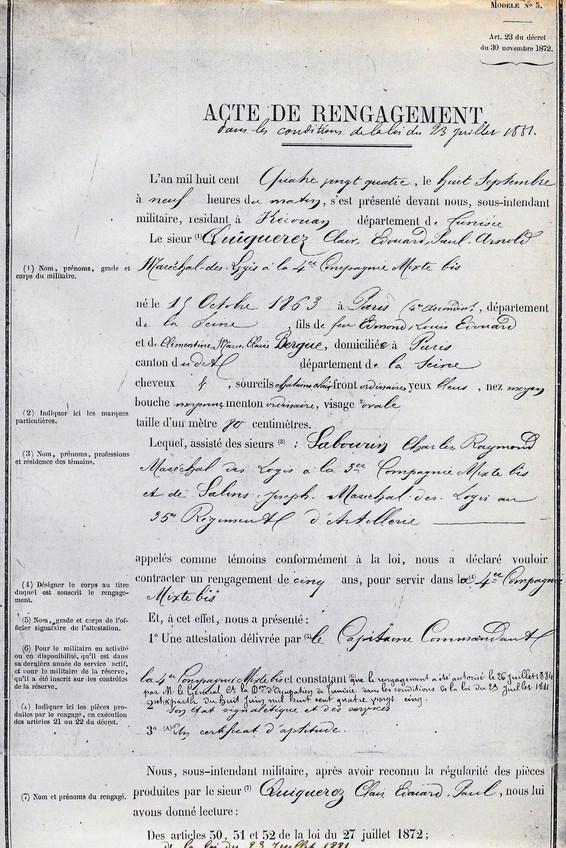 MODÈLE N° 5.
Art. 23 du décret
du 30 novembre 1872.
ACTE DE RENGAGEMENT.
dans les conditions de la loi du 23 juillet 1881.
L'an mil huit cent Quatre vingt quatre, le huit Septembre
à neuf heures du matin, s'est présenté devant nous, sous-intendant
militaire, résidant à Kérouan département de Tunisie
Le sieur (1) Quiquerez Clair, Edouard, Paul, Arnold
(1) Nom, prénoms, grade et
corps du militaire.
Maréchal-des-Logis à la 4e Compagnie Mixte bis
né le 15 Octobre 1863 à Paris département
de la Seine, fils de feu Edmond, Louis Edouard
et de Clémentine, Marie, Bergue, domiciliée à Paris
canton dudit département de la Seine
cheveux, sourcils front ordinaire yeux bleus, nez moyen
bouche moyenne menton ordinaire, visage ovale
(2) Indiquer ici les marques
particulières.
taille d'un mètre 70 centimètres.
(3) Nom, prénoms, professions
et résidence des témoins.
Lequel, assisté des sieurs (3) : Sabourin Charles Raymond
Maréchal des Logis à la 3e Compagnie Mixte bis
et de Salins, Joseph, Maréchal-des-Logis au
35e Régiment d'Artillerie
appelés comme témoins conformément à la loi, nous a déclaré vouloir
(4) Désigner le corps au titre
duquel est souscrit le rengage-
ment.
contracter un rengagement de cinq ans, pour servir dans la 4e Compagnie
Mixte bis
(5) Nom, grade et corps de l'of-
ficier signataire de l'attestation.
Et, à cet effet, nous a présenté :
1° Une attestation délivrée par (5) le Capitaine Commandant
(6) Pour le militaire en activité
ou en disponibilité, qu'il est dans
sa dernière année de service actif,
et pour le militaire de la réserve,
qu'il a été inscrit sur les contrôles
de la réserve.
la 4e Compagnie Mixte bis et constatant que le rengagement a été autorisé le 26 juillet 1884
par M. le Général Ct la Don d'Occupation de Tunisie dans les conditions de la loi du 23 juillet 1881
du huit Juin mil huit cent quatre vingt cinq.
2° Son état signalétique et des services
(A) Indiquer ici les pièces
produites par le rengagé, en exécution
des articles 21 ou 22 du décret.
3° (A) Un certificat d'aptitude.
Nous, sous-intendant militaire, après avoir reconnu la régularité des pièces
(7) Nom et prénoms du rengagé.
produites par le sieur (7) Quiquerez Clair Edouard, Paul, nous lui
avons donné lecture :
Des articles 50, 51 et 52 de la loi du 27 juillet 1872 ;
de la loi du 23 Juillet 1881